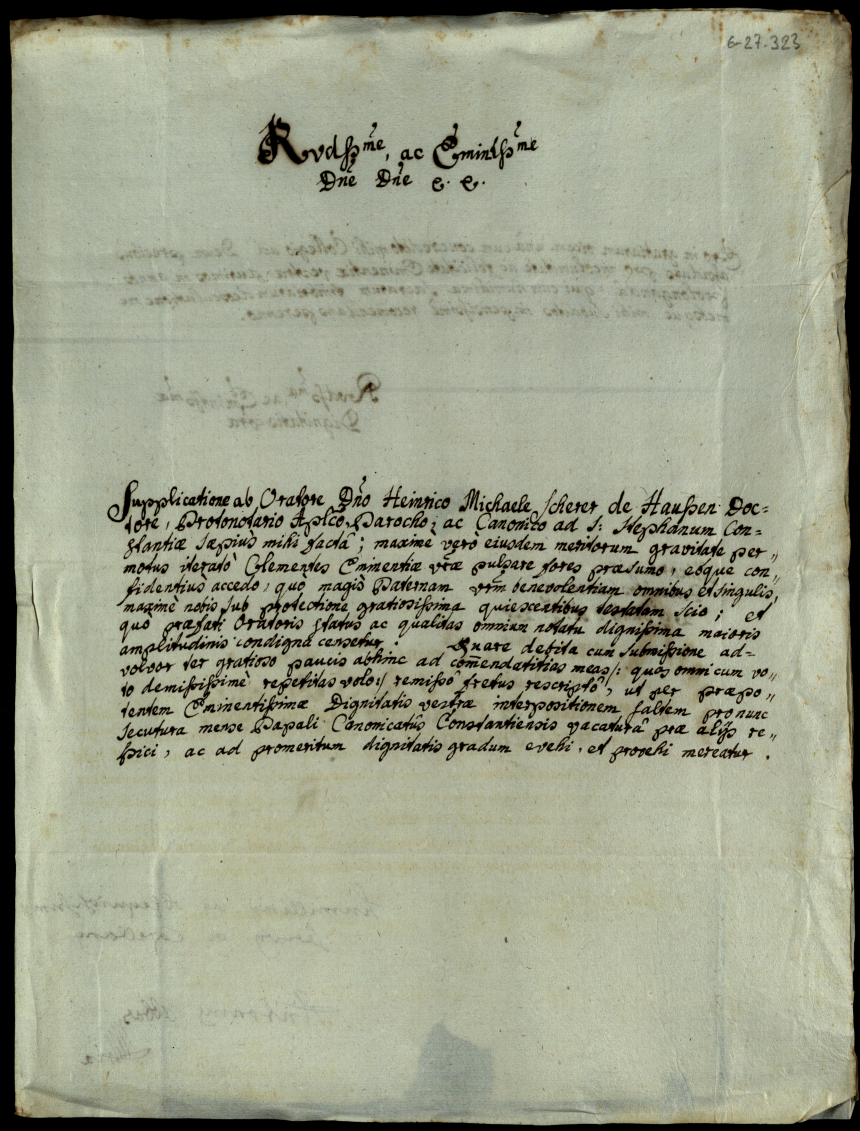 6-27-323
Rvdssme, ac Eminssme
Dne Dne e. e.
Supplicatione ab Oratore Dno Heinrico Michaele Scherer de Haussen Doc=
tore, Protonotario Aplco, Parocho, ac Canonico ad S: Stephanum Con=
stantiæ sæpius mihi facta; maximè verò eiusdem meritorum gravitate per=
motus iteratò Clementes Eminentiæ vræ pulsare fores præsumo, eòque con=
fidentius accedo, quò magis Paternam vrm benevolentiam omnibus et singulis,
maximè nobis sub protectione gratiosissima quiescentibus testatam scio; et
quò præfati Oratoris status ac qualitas omnium notatu dignissima maioris
amplitudinis condigna censetur. Quare debita cum submissione ad=
volvor ter gratioso paucis abhinc ad comendatitias meas /: quas omni cum vo=
to demississimè repetitas volo :/ remisso fretus rescripto, ut per præpo=
tentem Eminentissimæ Dignitatis vestræ interpositionem saltem pro nunc
secutura mense Papali Canonicatus Constantiensis vacatura præ alijs re=
spici, ac ad promeritum dignitatis gradum evehi, et provehi mereatur.